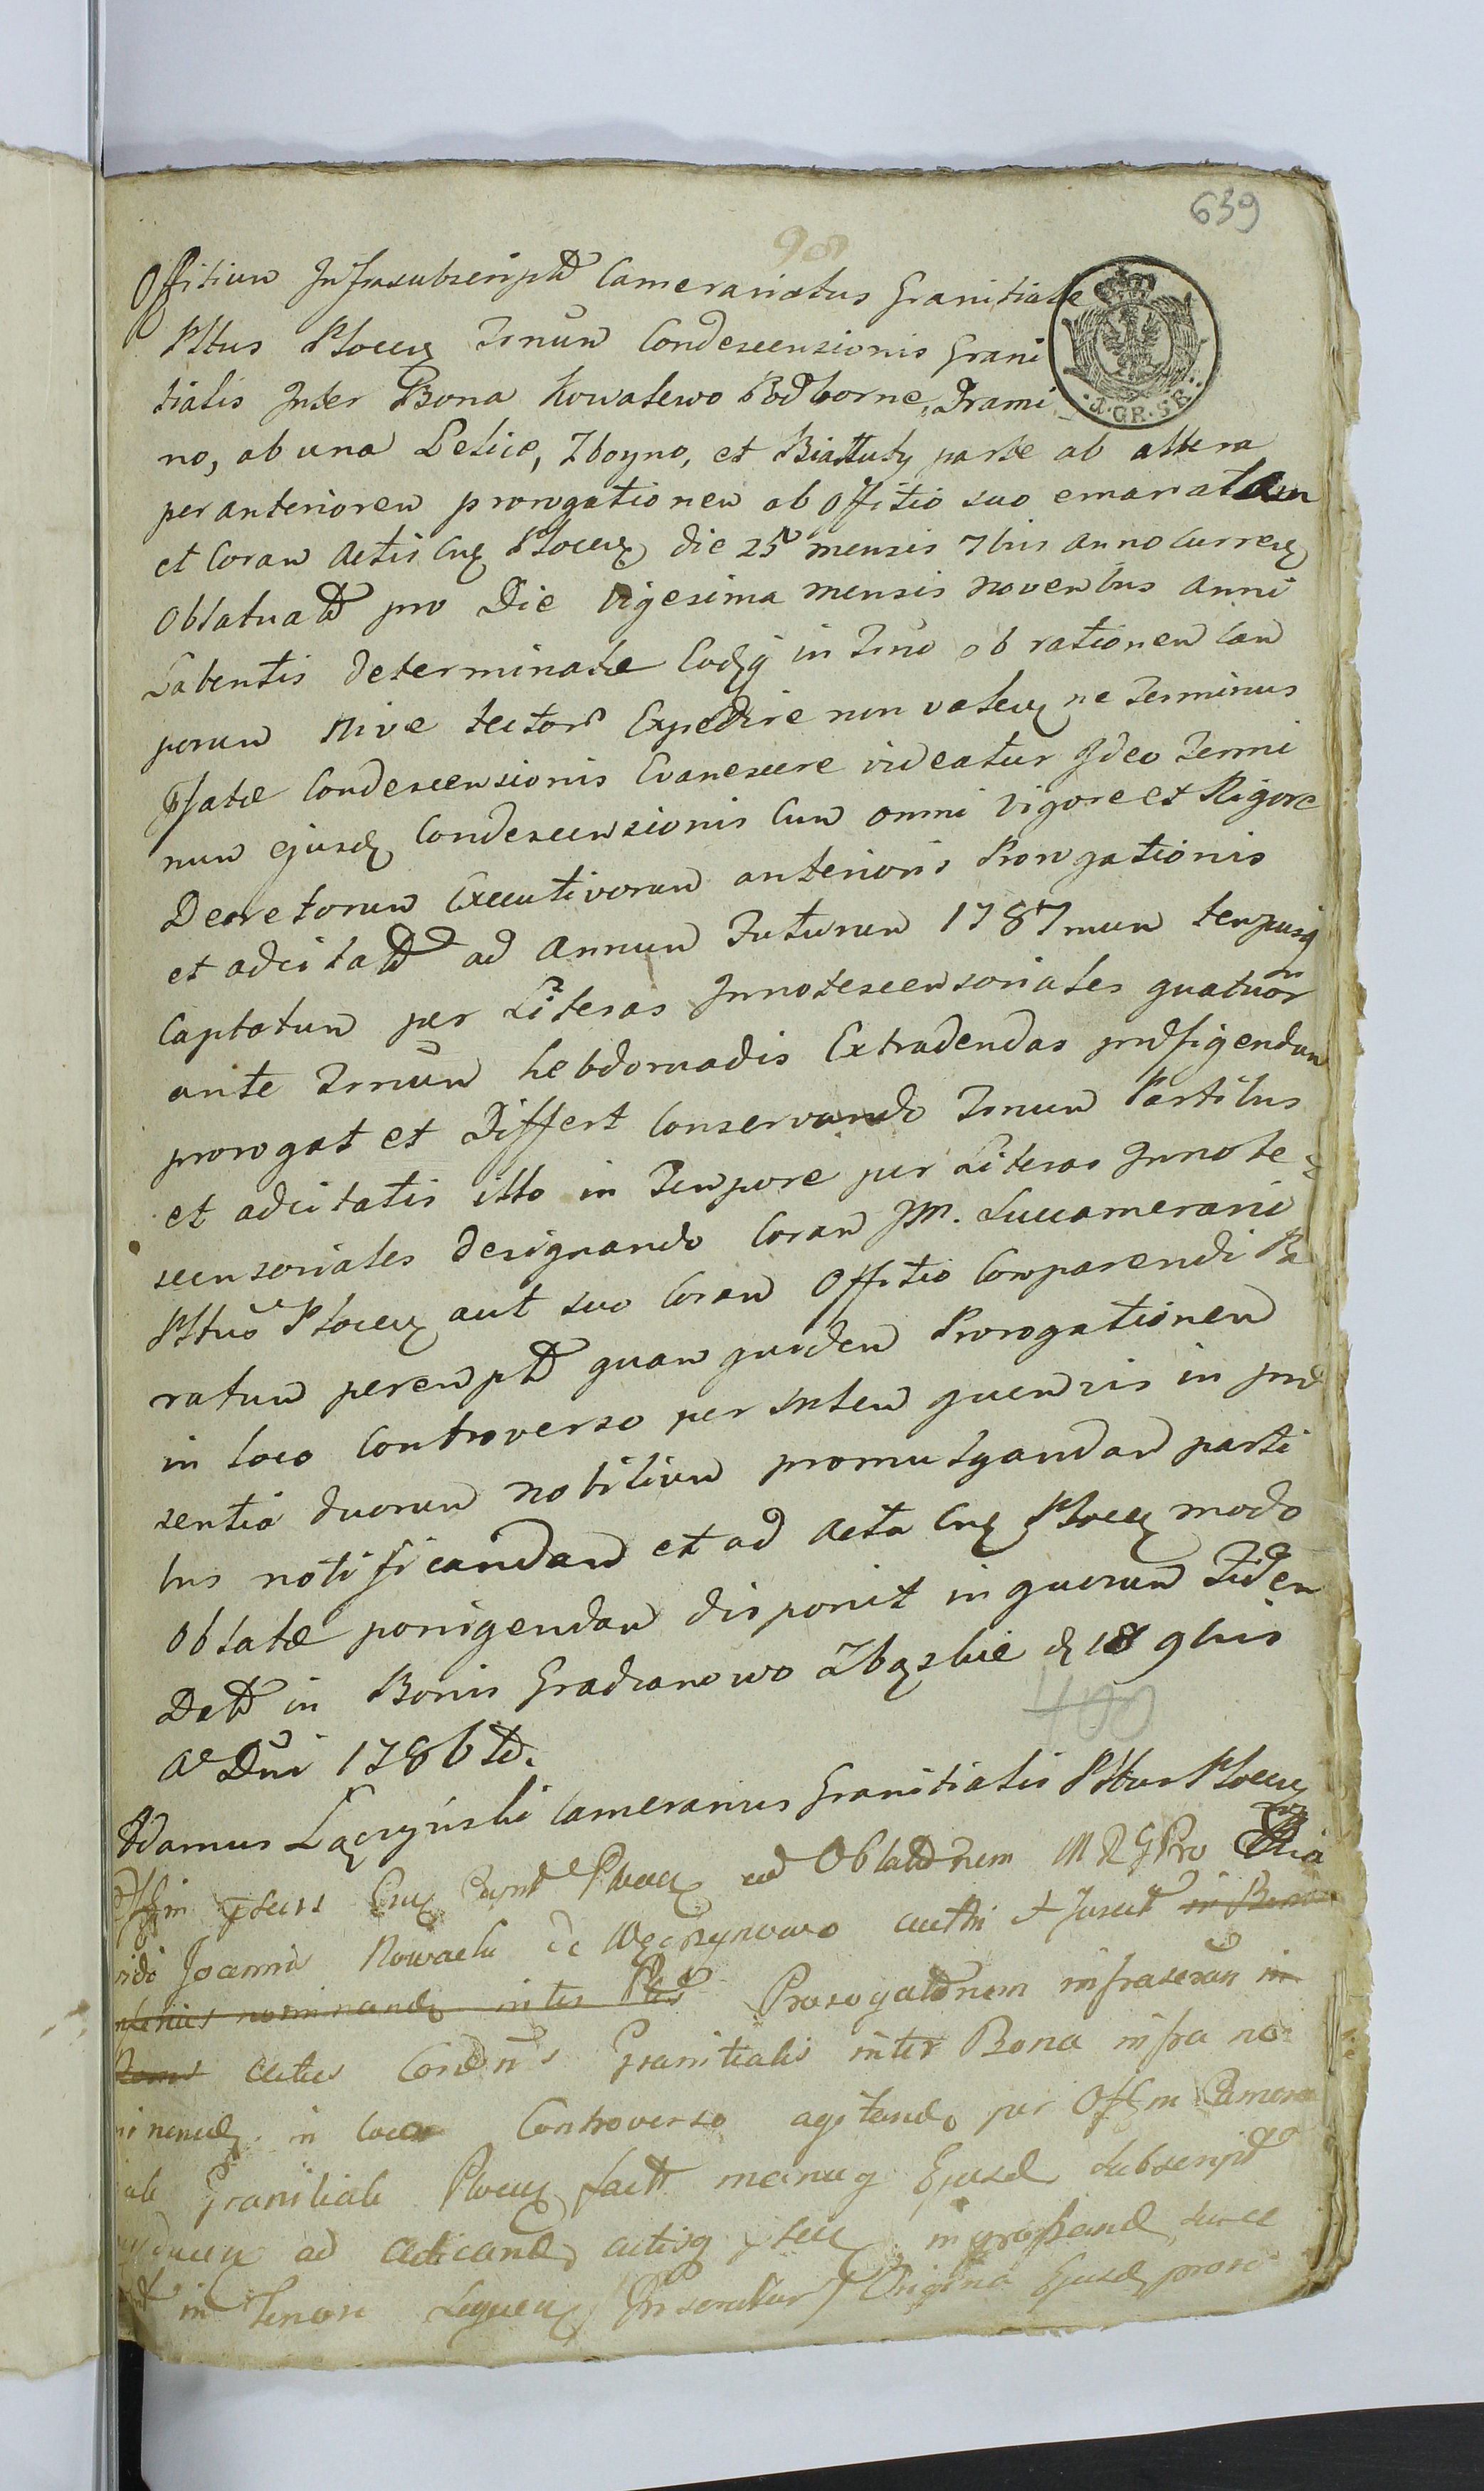 639
98
Offitium Infrasubscriptũ Camerariatus Granitiale
Pttus Plocen Tnũm Condescensionis Grani
tialis Inter Bona Kowalewo Podborne, Trami
no, ab una Lelice, Zboyno, et Białłuty parte ab altera
per anteriorem prorogationem ab Offitio suo emanatam
et Coram Actis Cn Plocen die 25 mensis 7bris anno curren
Oblatuatã pro Die Vigesima mensis Novenbris anni
Labentis determinatæ in Tnõ ob rationem Cam
porum nive tector Expedire non valen ne Terminus
Pfatæ Condescensionis Evanescere videatur Ideo Termi
num ejusd Condescensionis Cum omni vigore et Rigore
Decretorum Executivorum anterioris Prorogationis
et adcitatũ ad annum Futurum 1787mum tempusq
Captatum per Literas Innotescensoriales quatuor
ante Tnũm hebdomadis Extradendas præfigendum
prorogat et Differt Conservando Tnum Partibus
et adcitatis illo in Tempore per Literas Innote-
scensoriales designando Coram JM. Succamerario
Pttus Plocen aut suo Coram Offitio Comparendi Pa
ratum peremptũ quam quidem Prorogationem
in loco Controverso per Mtem quemvis in præ
sentia duorum nobilium promulgandam parti
bus notificandam et ad Acta Cn Plocen modo
Oblatæ porrigendam disponit in quorum Fidem
Datũ in Bonis Gradzanowo Zbęskie d 18 9bris
Aº Dni 1786tõ.
400
Adamus Łączyński Camerarius Granitialis Pttus Plocen
Offm Plocen ad Oblatonem M R G Pro
Joannis Nowacki de Węgrzynowo
nominand inter Prorogatõnem infrascram in
actus Condnis Granitialis inter Bona infra no
minand in loco Controverso agitando per Offm Camera
riale Granitiale Plocen fact manuq Ejusd Subscript
ad acticand actisq ingrossand
in Tenore Sequen Inseratur Origina Ejusd